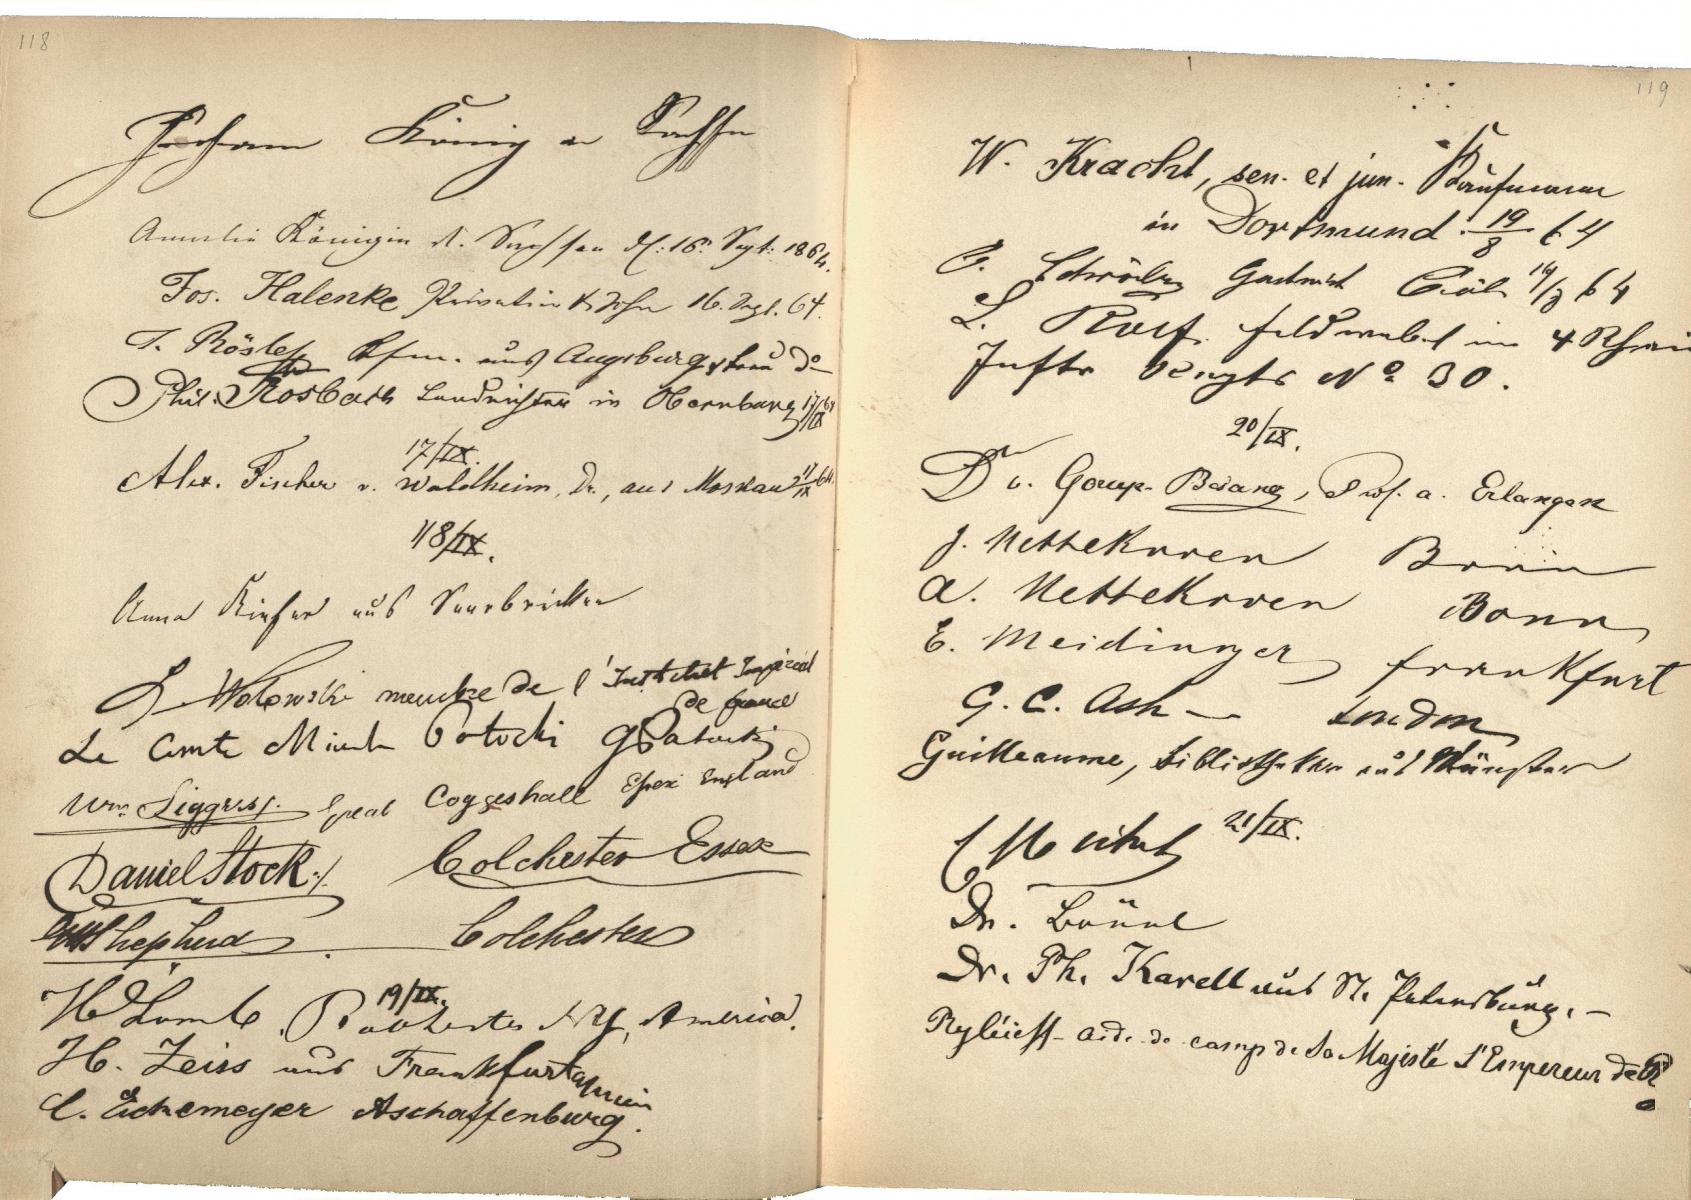 118
Johann König v Sachsen
Amelie Königin v. Sachsen d. 16n Sept: 1864.
Jos. Halenke, Privatier & Sohn 16. Sept. 64.
T. Rösler Kfm. aus Augsburg & Frau do
Phil. Rosbath Landrichter in Obernburg 17/IX 64
17/IX.
Alex. Fischer v. Waldheim, Dr., aus Moskau 17/IX 64.
18/IX.
Anna Kiefer aus Saarbrücken
L Wolowski membre de l'Institut Impérial
de france
Le Comte Potocki Potocki
Wm Great Coggeshall Essex England
Daniel Stock Colchester Essex
Shepherd Colchester
19/IX.
H Lomb Rochester NY, America.
H. Zeiss aus Frankfurt a/Main
C. Eichemeyer Aschaffenburg.
119
W. Kracht, sen. et jun. Kaufmann
in Dortmund. 19/8 64
Gastwirth Cöln 64
L. Feldwebel im 4 Rhein
Inftr Regts No 30.
20/IX.
Dr v. Gorup-Besanez, Prof. a. Erlangen
J. Nettekoven Bonn
A. Nettekoven Bonn
E. Meidinger Frankfurt
G. C. Ash London
Guilleaume, Bibliothekar aus Münster
21/IX.
Dr.
Dr. Ph. Karell aus St. Petersburg.
Ryléieff aide de camp de Sa Majesté l'Empereur de R